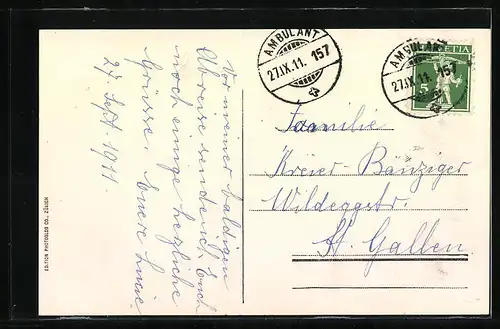 Vor meiner baldigen
Abreise sende ich Euch
noch einige herzliche
Grüsse. Euere Luise
27. Sept. 1911.
EDITION PHOTOGLOB CO., ZÜRICH
AMBULANT
27.IX.11. 157
AMBULANT
27.IX.11. 157
HELVETIA
5
Familie
Kreier Bänziger
Wildeggstr.
St. Gallen